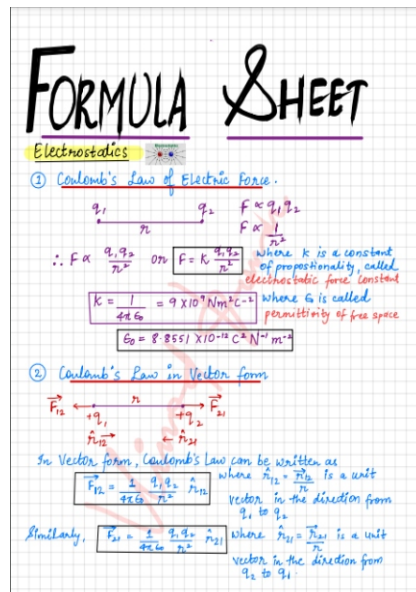 FORMULA SHEET
Electrostatics
① Coulomb's Law of Electric Force.
q₁ r q₂ F ∝ q₁q₂
F ∝ 1/r²
∴ F ∝ q₁q₂/r² or F = K q₁q₂/r² where K is a constant
of proportionality, called
electrostatic force constant
K = 1/4πε₀ = 9 X 10⁹ Nm²C⁻² where ε₀ is called
permittivity of free space
ε₀ = 8.8551 X10⁻¹² C² N⁻¹ m⁻²
② Coulomb's Law in Vector form
F⃗₁₂ +q₁ r +q₂ F⃗₂₁
r̂₁₂ r̂₂₁
In Vector form, Coulomb's Law can be written as
F⃗₁₂ = 1/4πε₀ q₁q₂/r² r̂₁₂ where r̂₁₂ = r⃗₁₂/r is a unit
vector in the direction from
q₁ to q₂
Similarly, F⃗₂₁ = 1/4πε₀ q₁q₂/r² r̂₂₁ where r̂₂₁ = r⃗₂₁/r is a unit
vector in the direction from
q₂ to q₁.